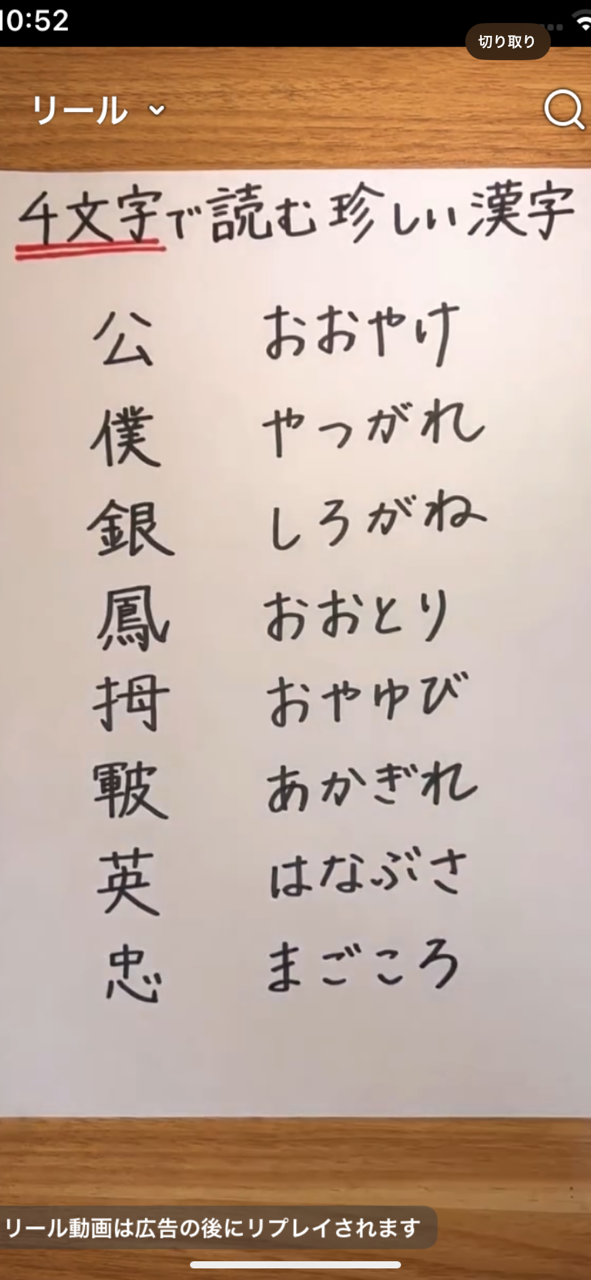 10:52
切り取り
リール
4文字で読む珍しい漢字
公 おおやけ
僕 やつがれ
銀 しろがね
鳳 おおとり
拇 おやゆび
皸 あかぎれ
英 はなぶさ
忠 まごころ
リール動画は広告の後にリプレイされます